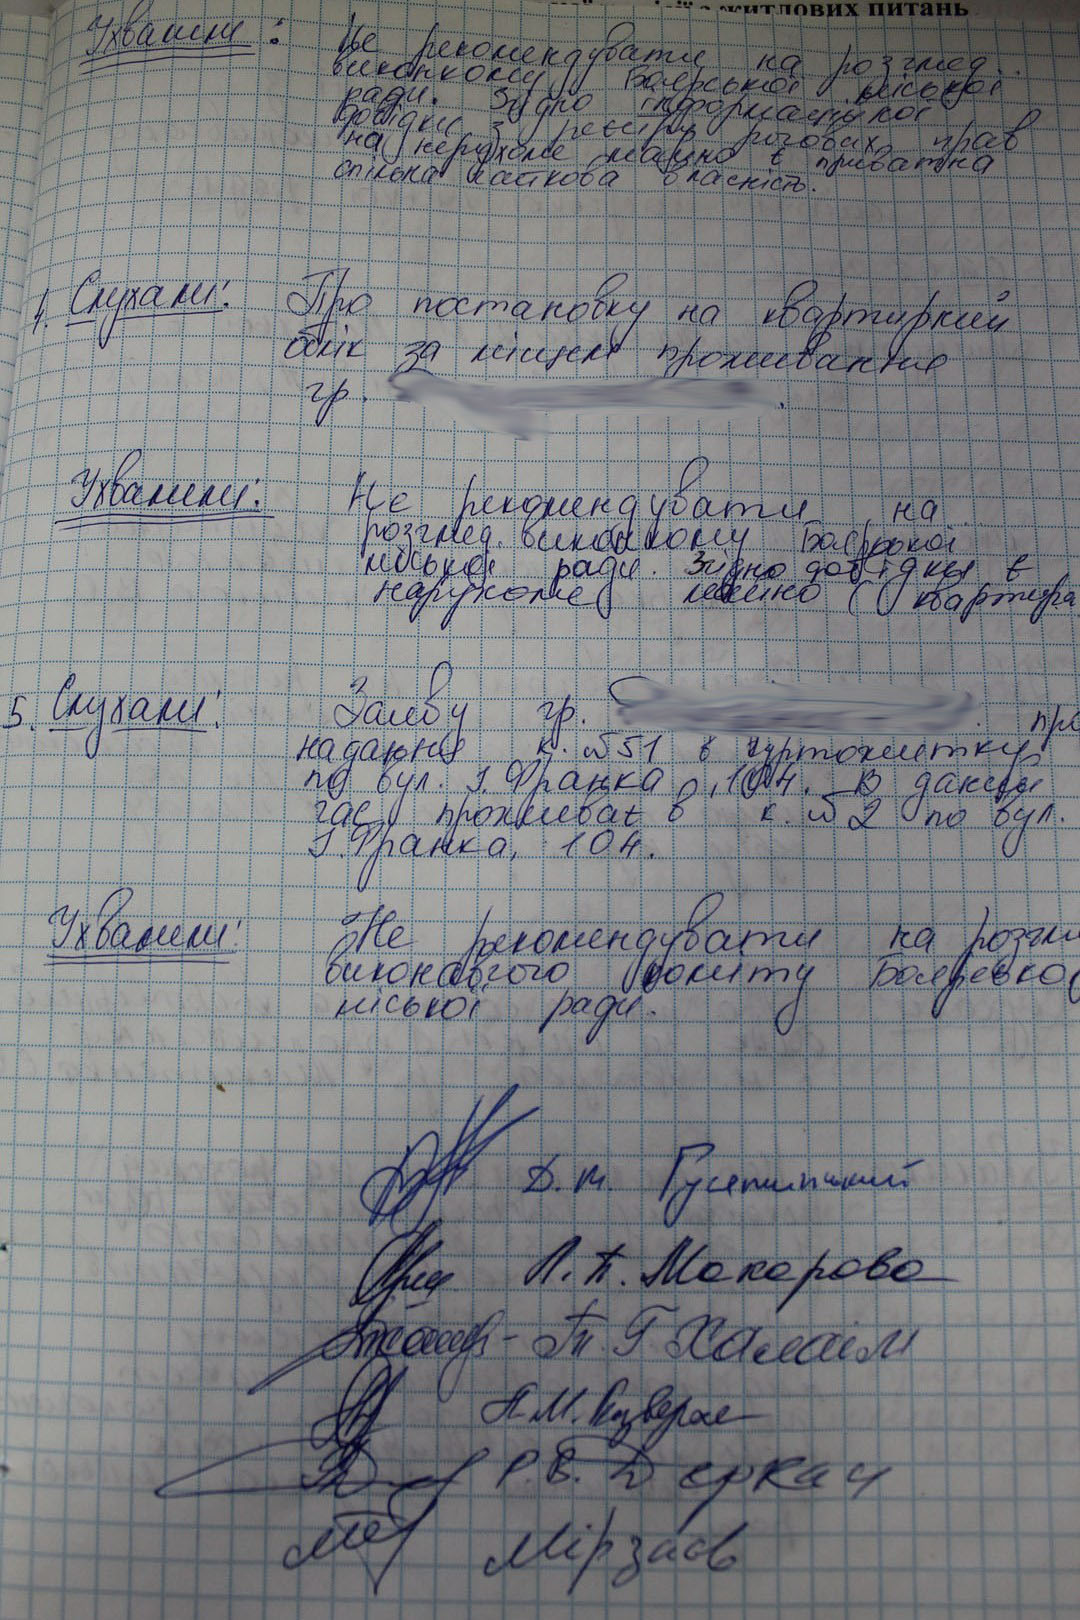 житлових питань
Ухвалили: Не рекомендувати на розгляд
виконкому Боярської міської
ради. Згідно інформаційної
довідки з реєстру речових прав
на нерухоме майно є приватна
спільна часткова власність.
4. Слухали: Про постановку на квартирний
облік за місцем проживання
гр.
Ухвалили: Не рекомендувати на
розгляд. виконкому Боярської
міської ради. Згідно довідки є
нерухоме майно (квартира
5. Слухали: Заяву гр. про
надання к. №51 в гуртожитку
по вул. І. Франка, 104. В даний
час проживає в к. №2 по вул.
І. Франка, 104.
Ухвалили: Не рекомендувати на розгля
виконавчого комітету Боярсько
міської ради.
Д. М.
Л. П. Макарова
Т. Г. Халаім
Р. В. Деркач
Мірзаєв